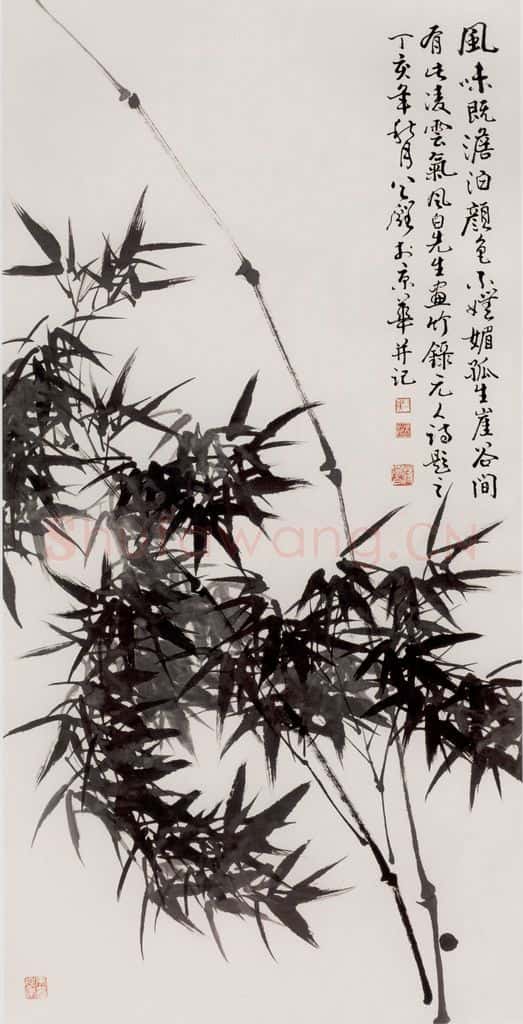 風味既澹泊顏色不嫵媚孤生崖谷間
有此凌雲氣風白先生画竹錄元人詩題之
丁亥年秋月於京華并記
Shufawang.CN